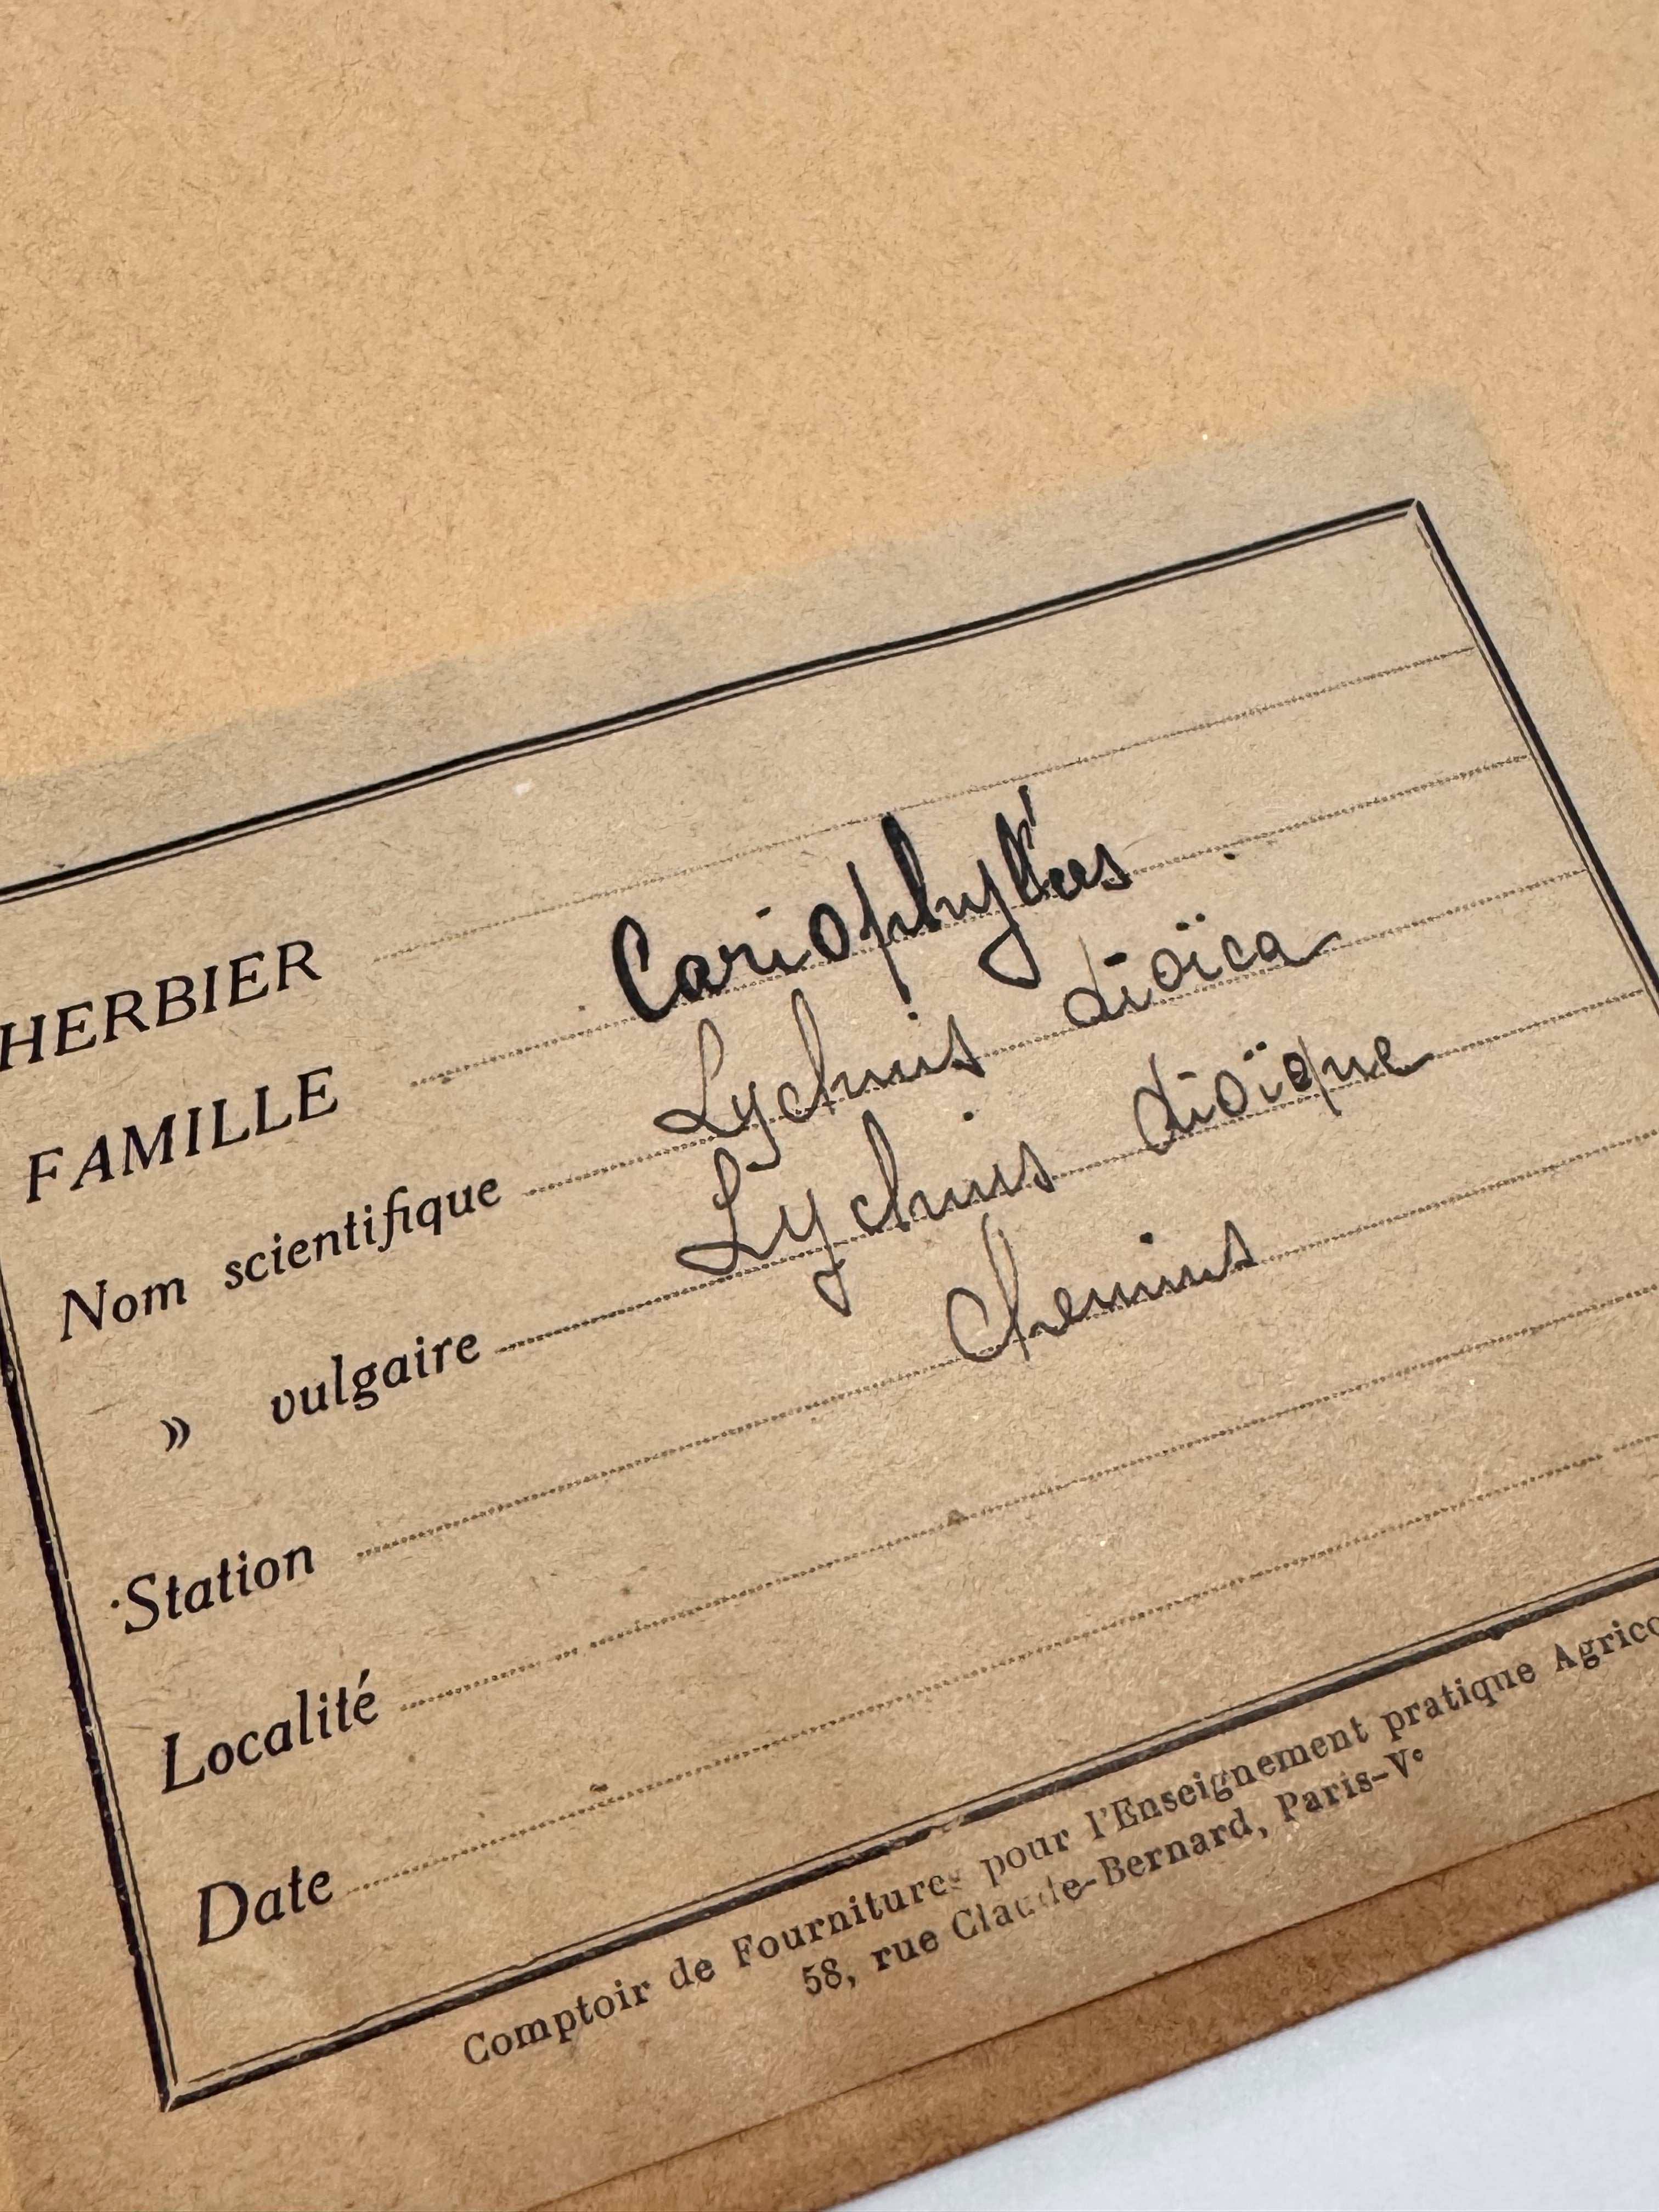 HERBIER
FAMILLE Cariophylées
Nom scientifique Lychnis dioïca
» vulgaire Lychnis dioïque
Station Chemins
Localité
Date
Comptoir de Fournitures pour l'Enseignement pratique Agrico
58, rue Claude-Bernard, Paris-Vᵉ